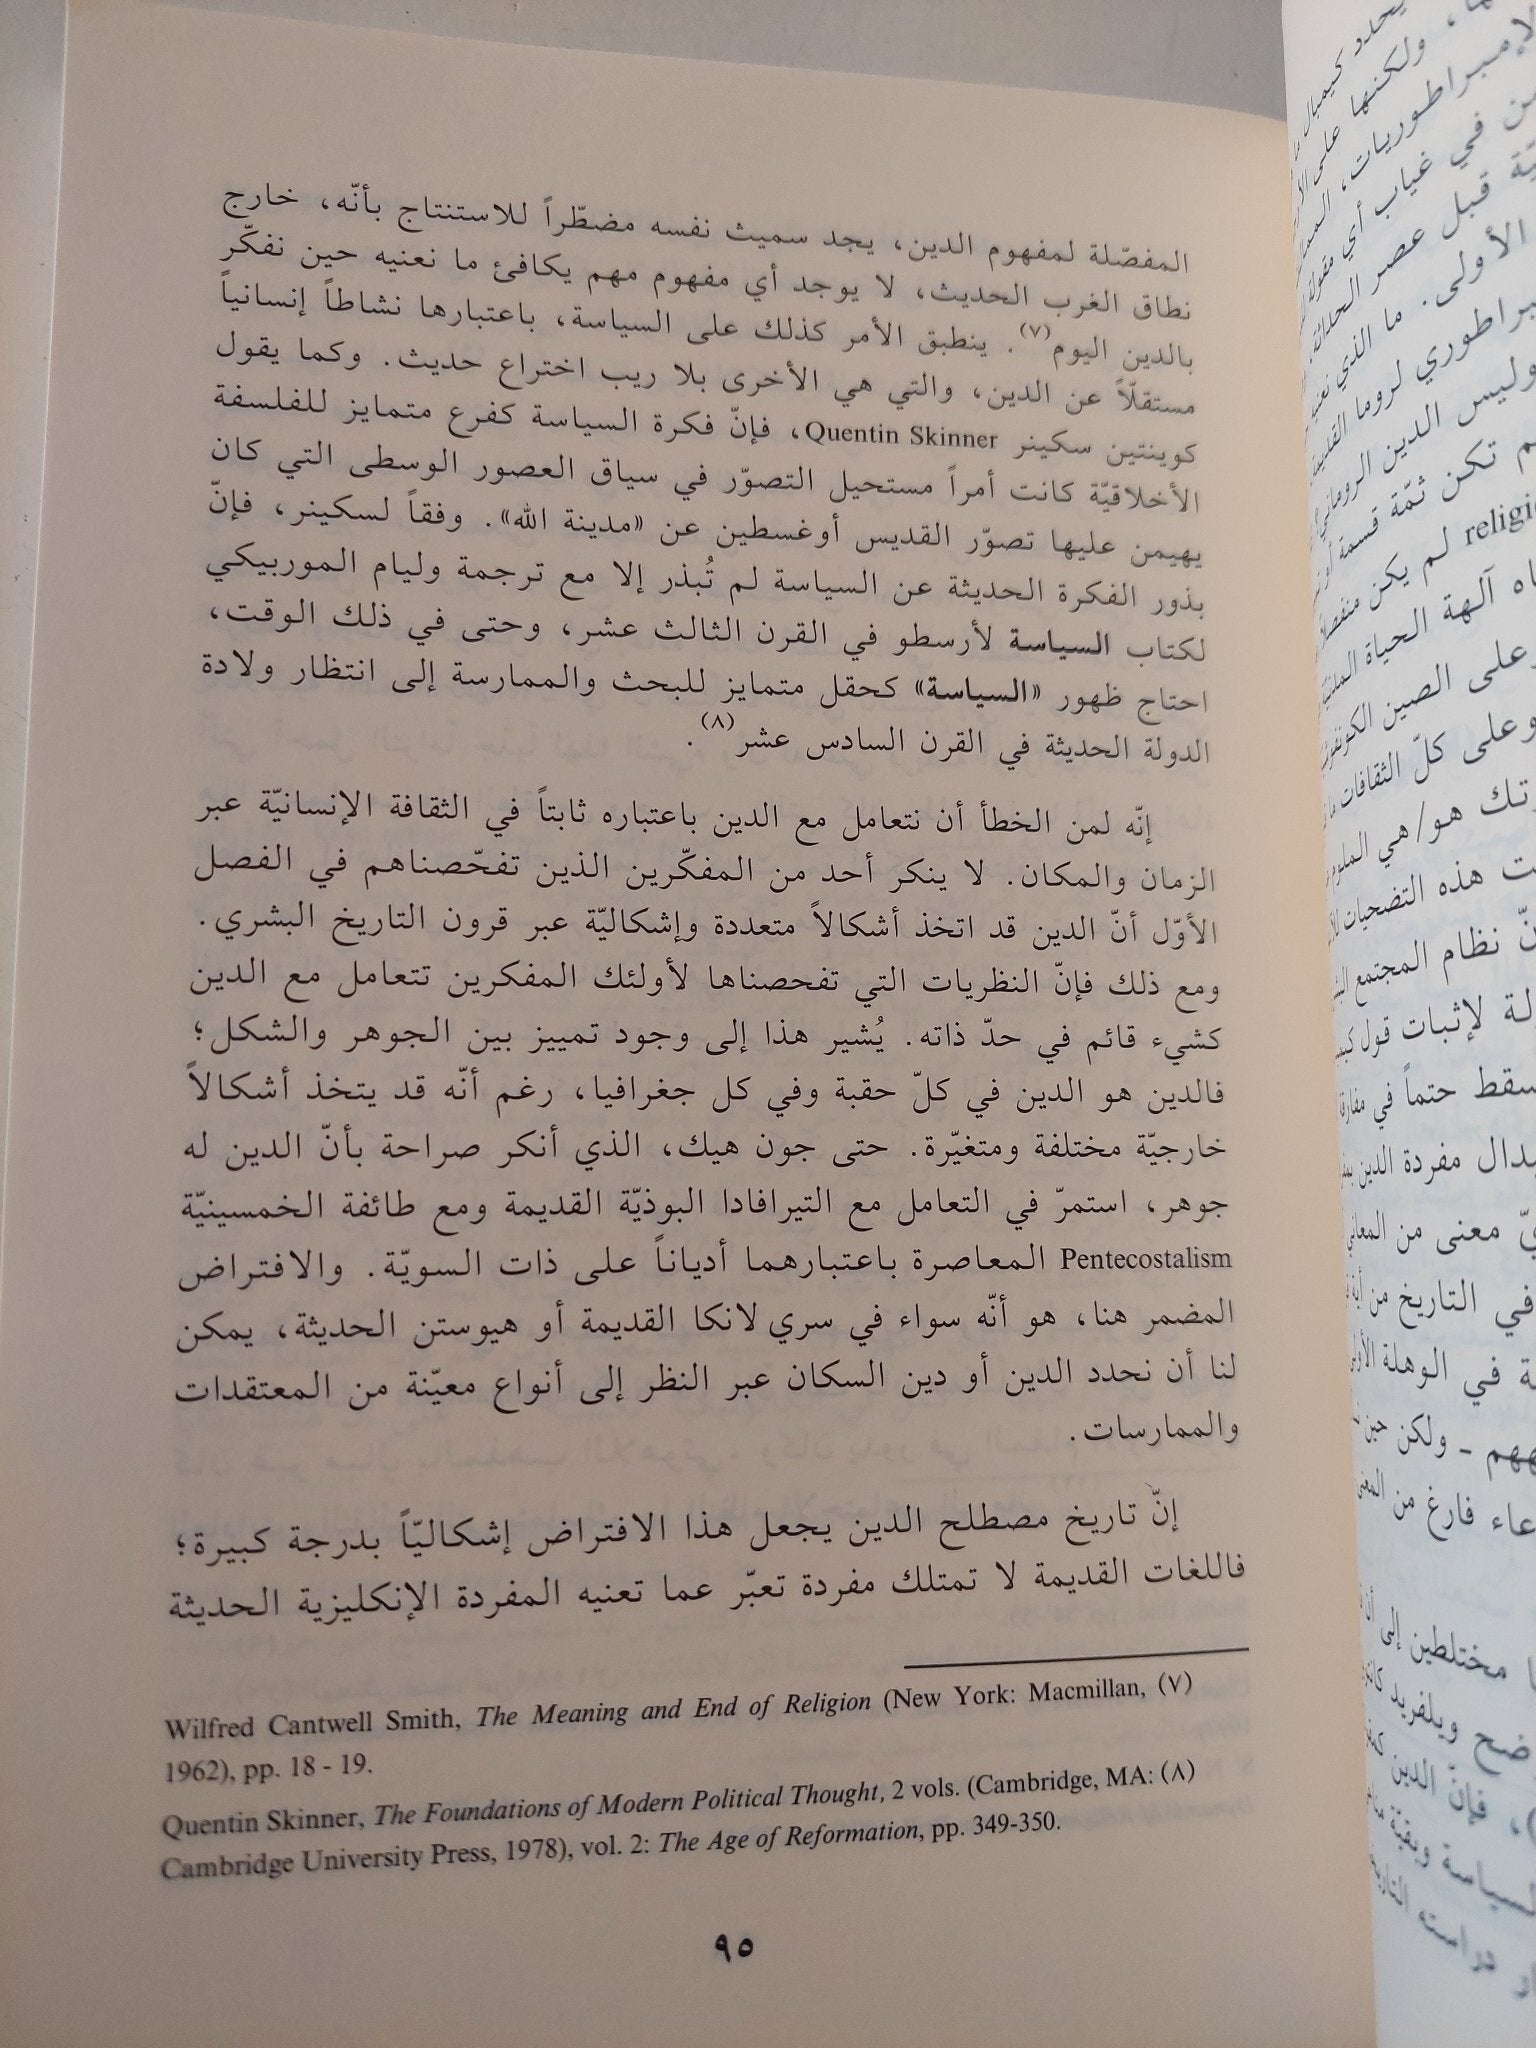 المفصّلة لمفهوم الدين، يجد سميث نفسه مضطّراً للاستنتاج بأنّه، خارج
نطاق الغرب الحديث، لا يوجد أي مفهوم مهم يكافئ ما نعنيه حين نفكّر
بالدين اليوم(٧). ينطبق الأمر كذلك على السياسة، باعتبارها نشاطاً إنسانياً
مستقلّاً عن الدين، والتي هي الأخرى بلا ريب اختراع حديث. وكما يقول
كوينتين سكينر Quentin Skinner، فإنّ فكرة السياسة كفرع متمايز للفلسفة
الأخلاقيّة كانت أمراً مستحيل التصوّر في سياق العصور الوسطى التي كان
يهيمن عليها تصوّر القديس أوغسطين عن «مدينة الله». وفقاً لسكينر، فإنّ
بذور الفكرة الحديثة عن السياسة لم تُبذر إلا مع ترجمة وليام الموربيكي
لكتاب السياسة لأرسطو في القرن الثالث عشر، وحتى في ذلك الوقت،
احتاج ظهور «السياسة» كحقل متمايز للبحث والممارسة إلى انتظار ولادة
الدولة الحديثة في القرن السادس عشر(٨).
إنّه لمن الخطأ أن نتعامل مع الدين باعتباره ثابتاً في الثقافة الإنسانيّة عبر
الزمان والمكان. لا ينكر أحد من المفكّرين الذين تفحّصناهم في الفصل
الأوّل أنّ الدين قد اتخذ أشكالاً متعددة وإشكاليّة عبر قرون التاريخ البشري.
ومع ذلك فإنّ النظريات التي تفحصناها لأولئك المفكرين تتعامل مع الدين
كشيء قائم في حدّ ذاته. يُشير هذا إلى وجود تمييز بين الجوهر والشكل؛
فالدين هو الدين في كلّ حقبة وفي كل جغرافيا، رغم أنّه قد يتخذ أشكالاً
خارجيّة مختلفة ومتغيّرة. حتى جون هيك، الذي أنكر صراحة بأنّ الدين له
جوهر، استمرّ في التعامل مع التيرافادا البوذيّة القديمة ومع طائفة الخمسينيّة
Pentecostalism المعاصرة باعتبارهما أدياناً على ذات السويّة. والافتراض
المضمر هنا، هو أنّه سواء في سري لانكا القديمة أو هيوستن الحديثة، يمكن
لنا أن نحدد الدين أو دين السكان عبر النظر إلى أنواع معيّنة من المعتقدات
والممارسات.
إنّ تاريخ مصطلح الدين يجعل هذا الافتراض إشكاليّاً بدرجة كبيرة؛
فاللغات القديمة لا تمتلك مفردة تعبّر عما تعنيه المفردة الإنكليزية الحديثة
Wilfred Cantwell Smith, The Meaning and End of Religion (New York: Macmillan, (٧)
1962), pp. 18 - 19.
Quentin Skinner, The Foundations of Modern Political Thought, 2 vols. (Cambridge, MA: (٨)
Cambridge University Press, 1978), vol. 2: The Age of Reformation, pp. 349-350.
٩٥
يحدد كيمبال
ولكنها على
في غياب أي مقولة
قبل عصر الحداثة.
الأولى. ما الذي نعنيه
لروما القديمة
وليس الدين الروماني
تكن ثمّة قسمة
لم يكن منفصلا
آلهة الحياة المدنيّة
وعلى الصين
وعلى كلّ الثقافات
هو/هي
هذه التضحيات
نظام المجتمع
لإثبات قول
حتماً في
مفردة الدين
معنى من المعاني
في التاريخ من
في الوهلة
ـ ولكن حين
فارغ من المعنى
مختلطين إلى
ويلفريد
فإنّ الدين